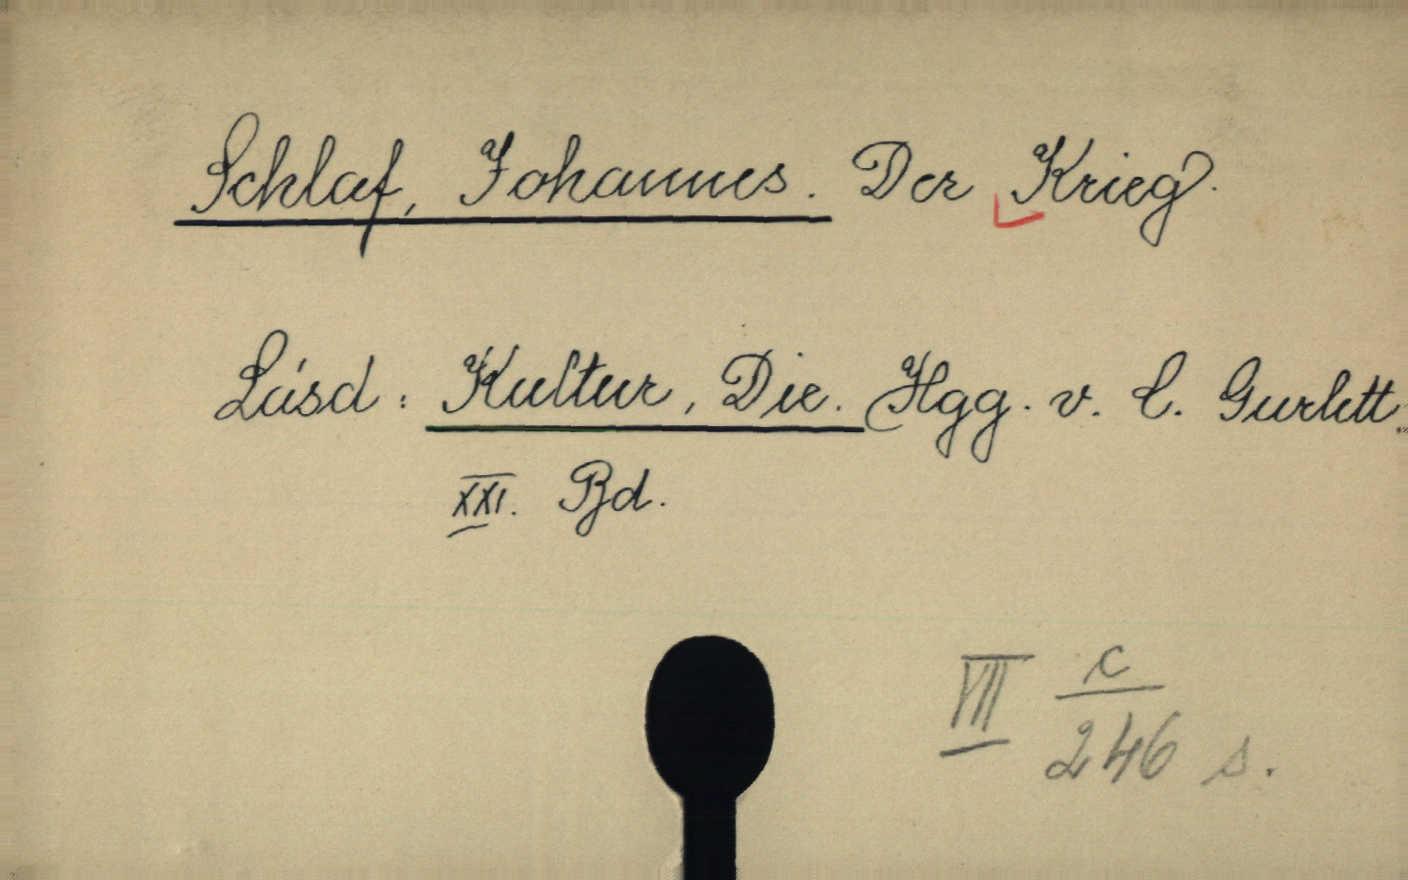 Schlaf, Johannes. Der Krieg.
Lásd: Kultur, Die. Hgg. v. C. Gurlitt.
XXI. Bd.
VII c
246 s.